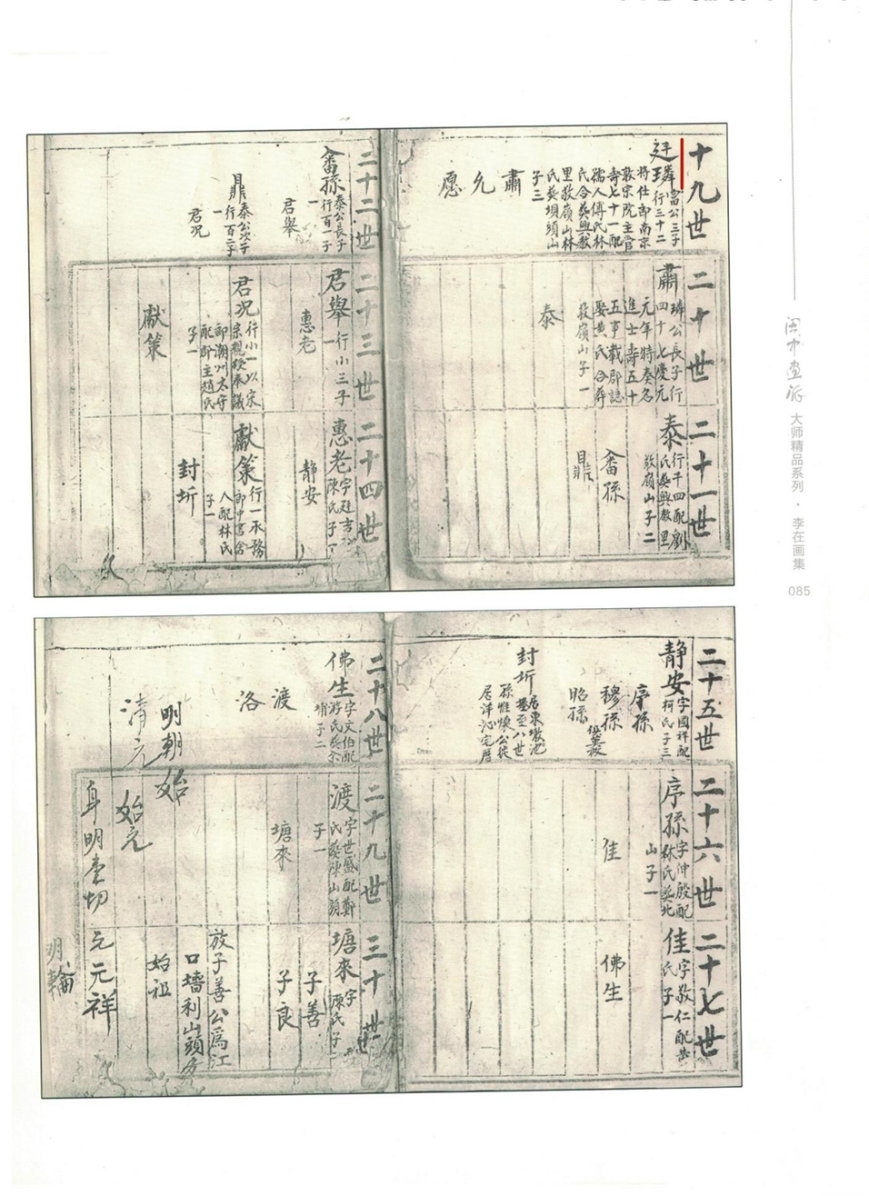 十九世
廷璘
富公三子
行三十二
將仕郎南京
敦宗院主管
壽七十一配
孺人傅氏林
氏合葬興教
里敖嶺山林
氏葬埧頭山
子三
肅
允
愿
二十世
肅
璘公長子行
四十七慶元
元年特奏名
進士壽五十
五事載郡誌
娶黄氏合葬
敖嶺山子一
泰
二十一世
泰
行千四配劉
氏葬興教里
敖嶺山子二
畬孫
鼎
二十二世
畬孫
泰公長子
行百一子
一
君舉
鼎
泰公次子
行百二子
一
君况
二十三世
君舉
行小三子
一
惠老
君况
行小一以宋
宗親
郎潮州太守
配郡主趙氏
子一
獻策
二十四世
惠老
字廷言
陳氏子一
静安
獻策
行一承務
郎中書舍
人配林氏
子一
封圻
二十五世
静安
字國祥配
柯氏子三
序孫
穆孫
昭孫
封圻
居東墩
基至八世
孫惟煉公徙
居洋沁定厝
二十六世
序孫
字仲殷配
林氏葬北
山子一
佳
二十七世
佳
字敬仁配黄
氏子一
佛生
二十八世
佛生
字文伯配
游氏葬六
埔子二
渡
洛
明朝始
清元
始元
二十九世
渡
字世盛配鄭
氏葬陳山頭
子一
塘來
身明堂切
三十世
塘來
字
陳氏子二
子善
子良
放子善公爲江
口墻利山頭
始祖
元元祥
明輪
闽中画派
大师精品系列·李在画集
085